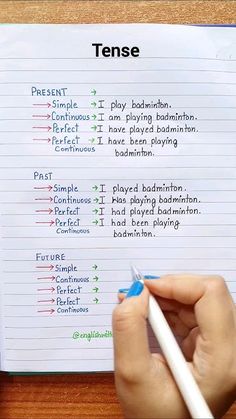 Tense
PRESENT →
→ Simple → I play badminton.
→ Continuous → I am playing badminton.
→ Perfect → I have played badminton.
→ Perfect Continuous → I have been playing badminton.
PAST
→ Simple → I played badminton.
→ Continuous → I was playing badminton.
→ Perfect → I had played badminton.
→ Perfect Continuous → I had been playing badminton.
FUTURE →
→ Simple →
→ Continuous →
→ Perfect →
→ Perfect Continuous →